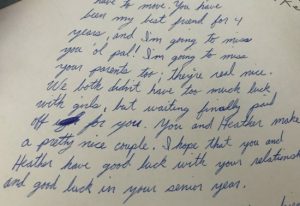 have to move. You have
been my best friend for 4
years, and I'm going to miss
you 'ol pal! I'm going to miss
your parents too; they're real nice.
We both didn't have too much luck
with girls, but waiting finally paid
off for you. You and Heather make
a pretty nice couple. I hope that you and
Heather have good luck with your relationsh
and good luck in your senior year.